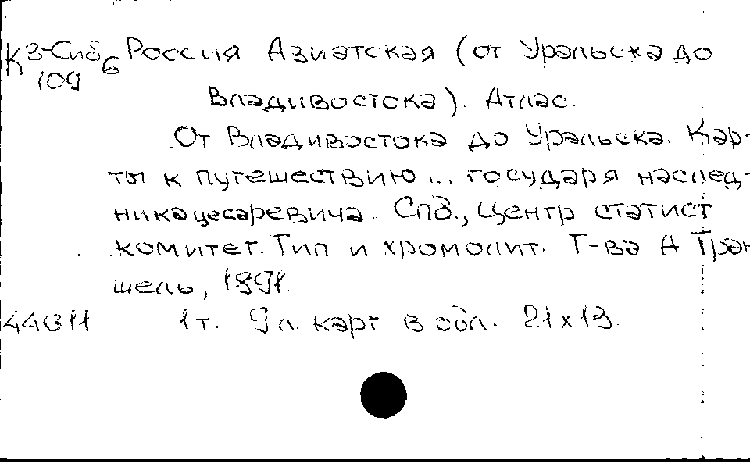 К 3-Сиб 6 Россия Азиатская (от Уральска до
109 Владивостока). Атлас.
От Владивостока до Уральска. Кар-
ты к путешествию ... государя наслед-
ника цесаревича. Спб., Центр статист
комитет. Тип и хромолит. Т-ва А Тран
шель, 1891.
1 т. 9 л. карт в обл. 21x13.